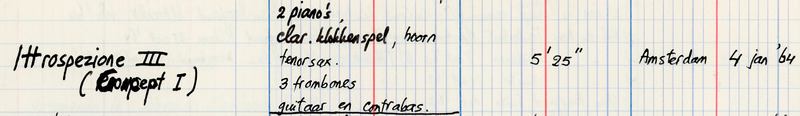 2 piano's,
clar. klokkenspel, hoorn
Ittrospezione III
tenorsax.
5'25"
Amsterdam
4 jan '64
(Konsept I)
3 trombones
guitaar en contrabas.